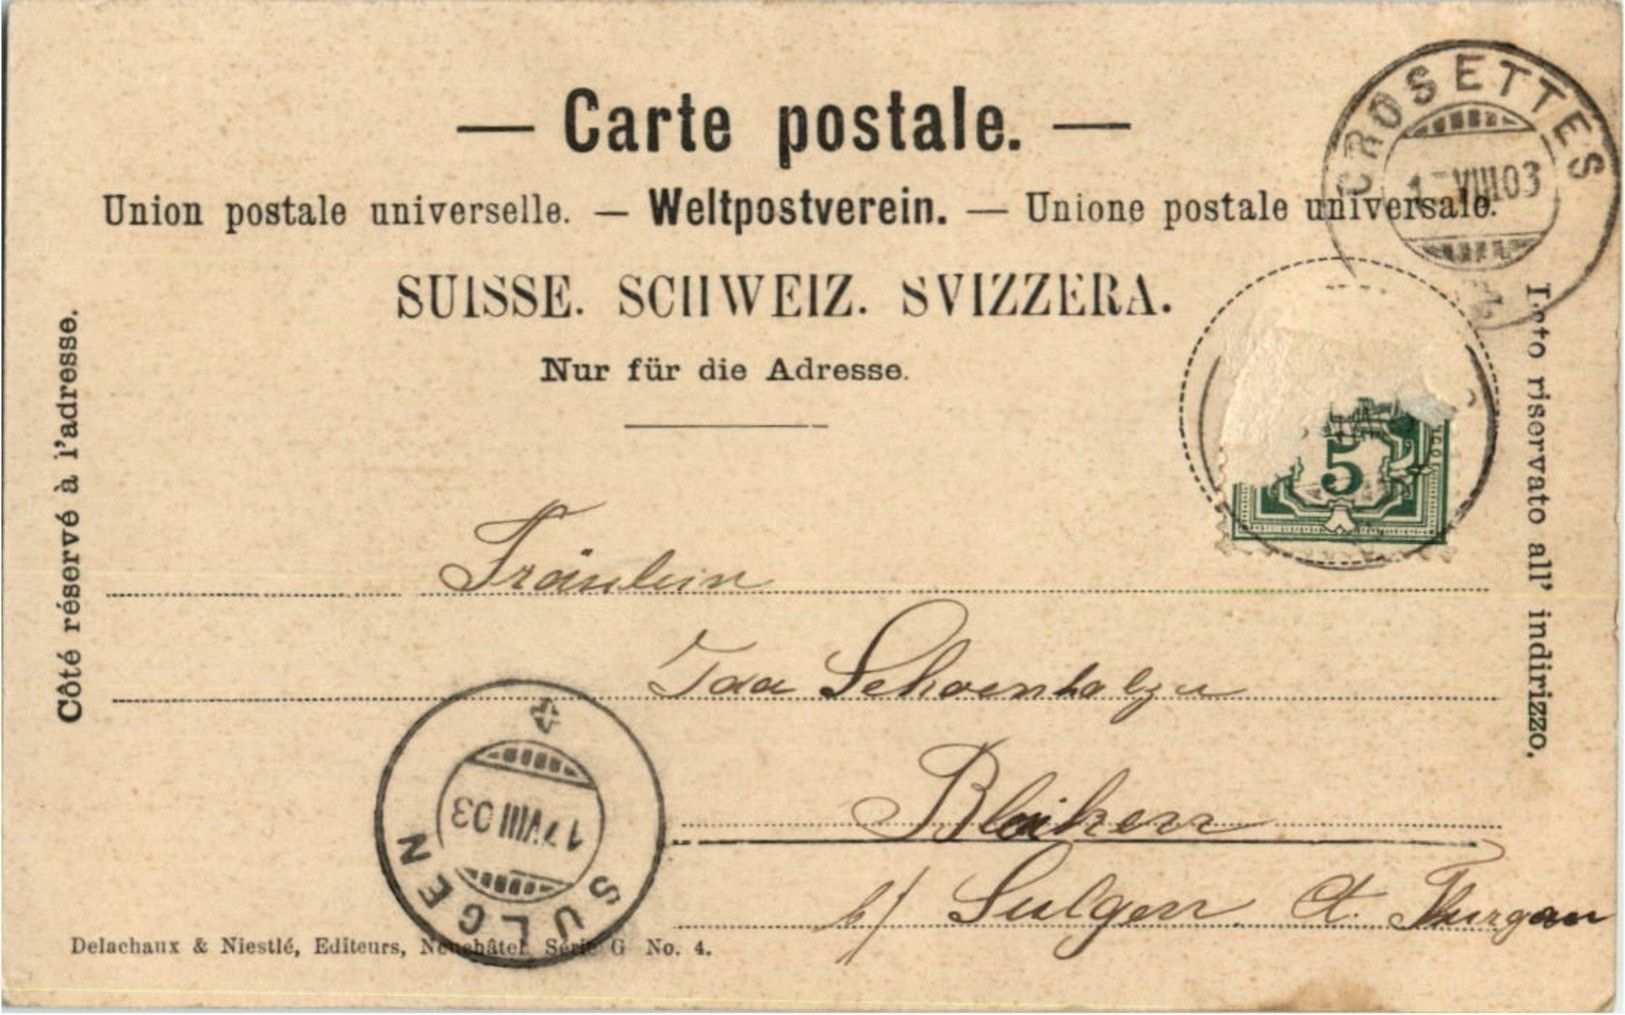 — Carte postale. —
Union postale universelle. — Weltpostverein. — Unione postale universale.
SUISSE. SCHWEIZ. SVIZZERA.
Nur für die Adresse.
Côté réservé à l'adresse.
Lato riservato all' indirizzo.
CROSETTES
VIII 03
5
Fräulein
Ida Schoenholzer
Bleiken
b/ Sulgen Ct. Thurgau
SULGEN
17.VIII 03
Delachaux & Niestlé, Editeurs, Neuchâtel Série G No. 4.